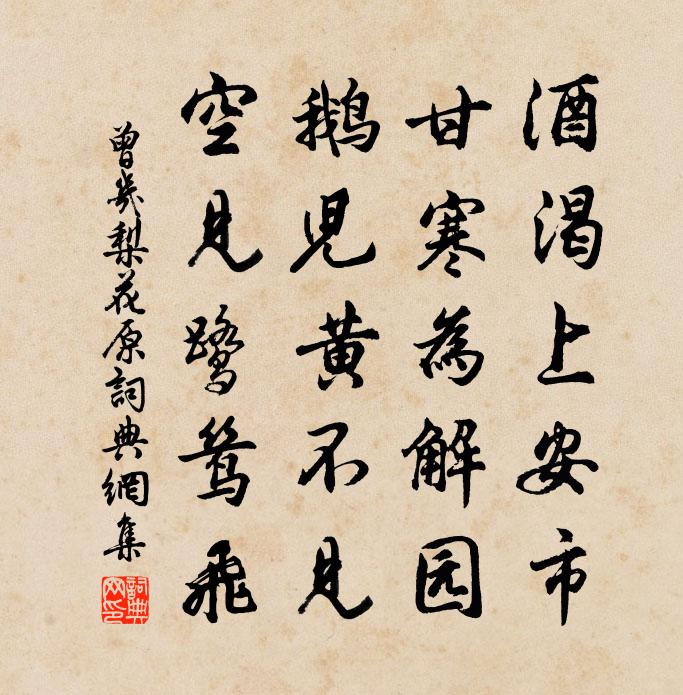 酒渴上安市
甘寒為解园
鵝兒黄不見
空見鹭鸶飛
曾幾梨花原詞典網集
詞典网印